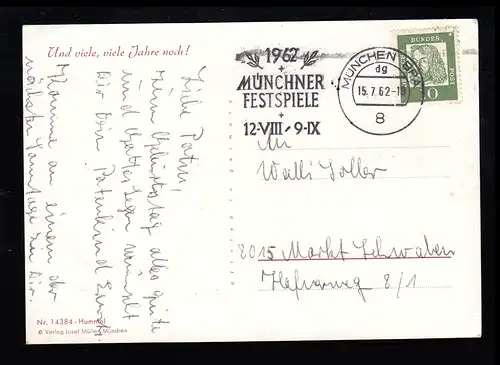 Und viele, viele Jahre noch!
Liebe Patin,
zum Geburtstag alles Gute
und Gottes Segen wünscht
Dir Dein Patenkind
Komme an einem der
nächsten Sonntage zu Dir.
Nr. 14384 - Hummel
© Verlag Josef Müller, München
1962
+
MÜNCHNER
FESTSPIELE
+
12·VIII - 9·IX
MÜNCHEN BPA
dg
15.7.62-18
8
BUNDES
POST
10
An
Walli Soller
8015 Markt Schwaben
Hafnerweg 8/1